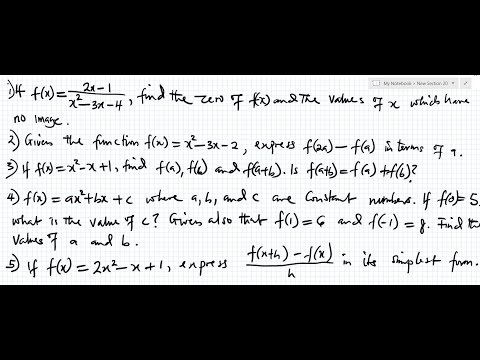 My Notebook > New Section 20
1) If f(x) = (2x-1)/(x²-3x-4), find the zero of f(x) and the values of x which have
no image.
2) Given the function f(x) = x²-3x-2, express f(2a) - f(a) in terms of a.
3) If f(x) = x²-x+1, find f(a), f(b) and f(a+b). Is f(a+b) = f(a) + f(b)?
4) f(x) = ax²+bx+c where a, b, and c are constant numbers. If f(0) = 5,
what is the value of c? Given also that f(1) = 6 and f(-1) = 8. Find the
values of a and b.
5) If f(x) = 2x²-x+1, express (f(x+h) - f(x))/h in its simplest form.